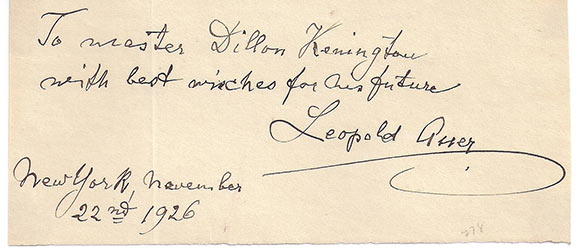 To master Dillon Kenington
with best wiches for his future
Leopold Auer
New York, November
22nd 1926